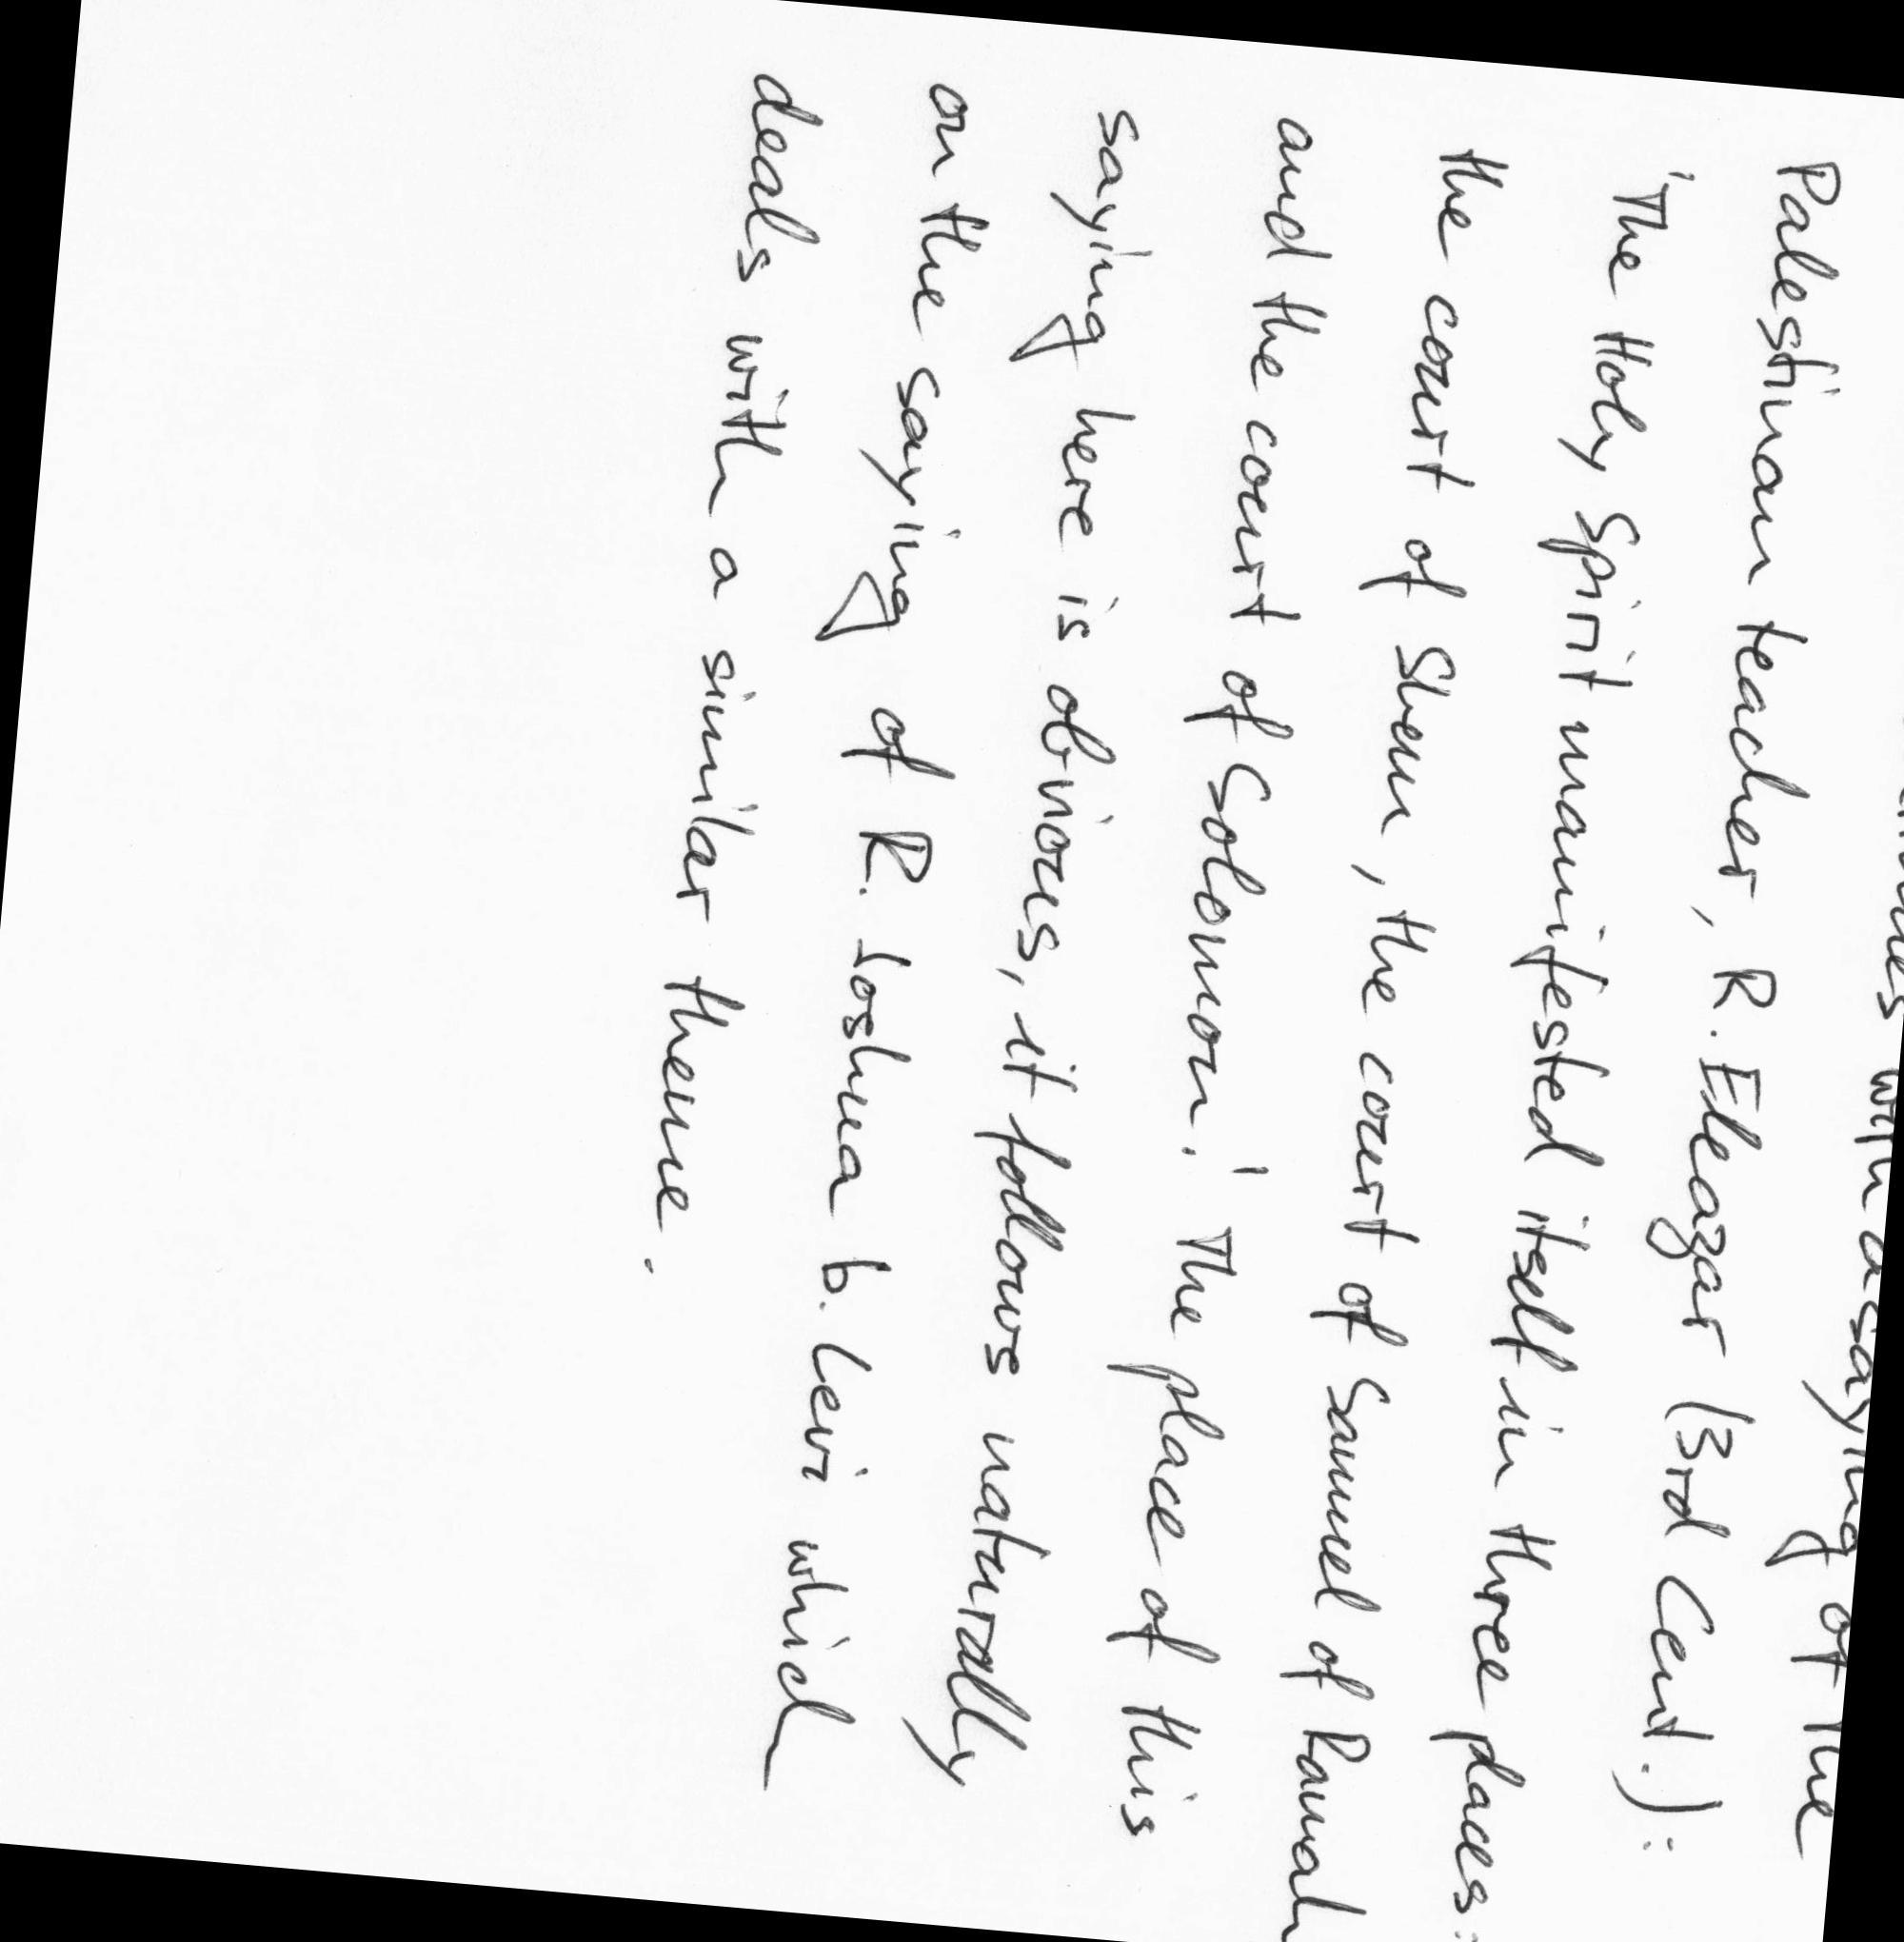 with a saying of the
Palestinian teacher, R. Eleazar (3rd Cent.):
'The Holy Spirit manifested itself in three places:
the court of Shem, the court of Samuel of Ramah
and the court of Solomon.' The place of this
saying here is obvious, it follows naturally
on the saying of R. Joshua b. Levi which
deals with a similar theme.